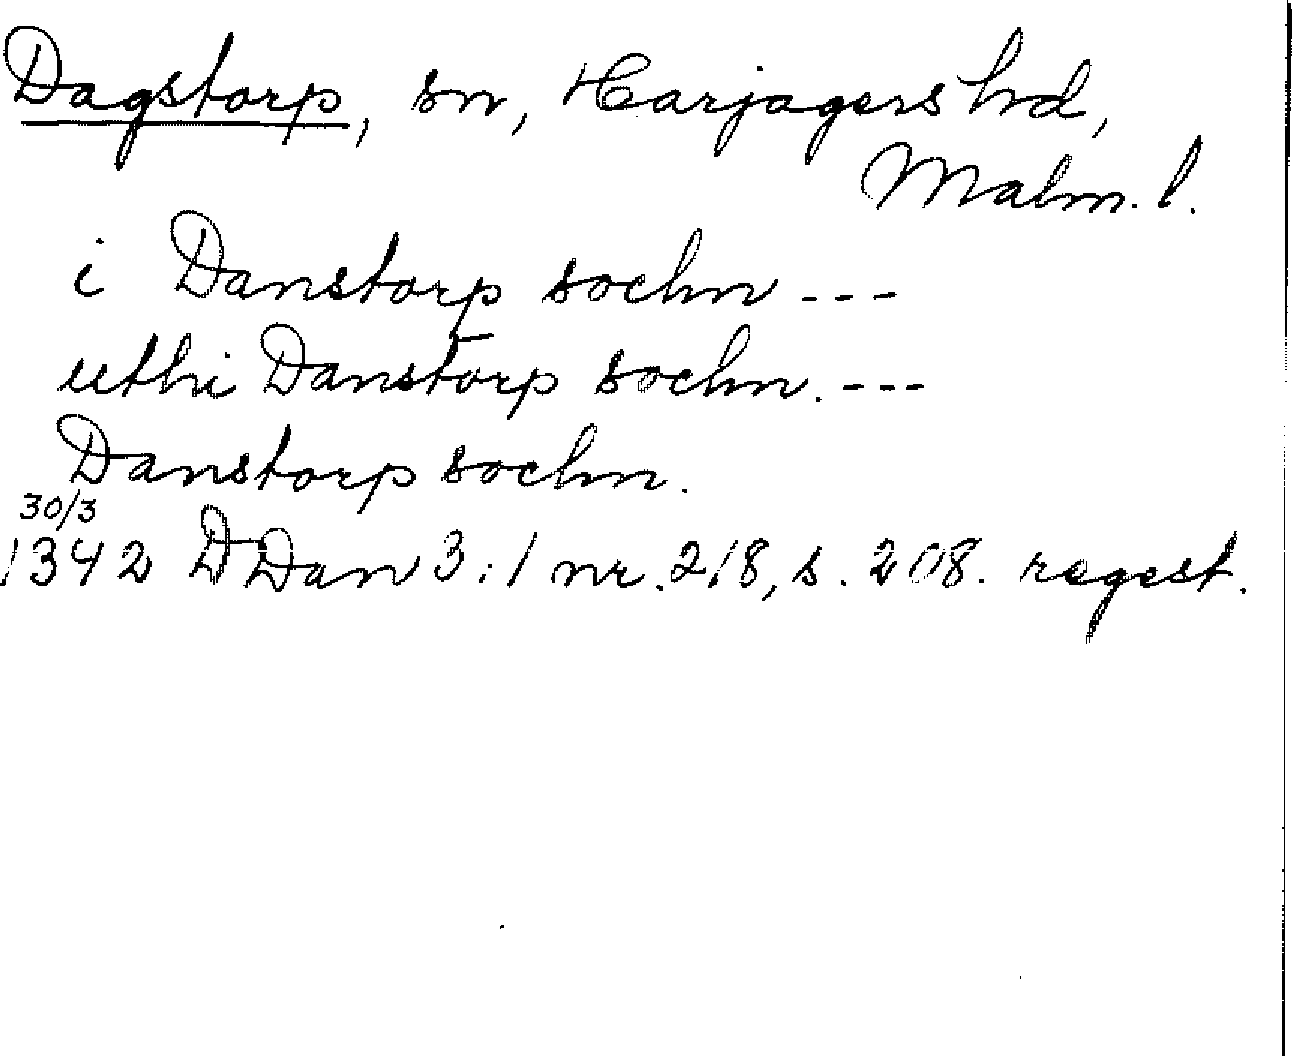 Dagstorp, sn, Harjagers hd,
Malm. l.
i Danstorp sochn ---
uthi Danstorp sochn. ---
Danstorp sochn.
30/3
1342 DDan 3:1 nr. 218, s. 208. regest.